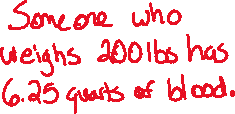 Someone who
weighs 200lbs has
6.25 quarts of blood.